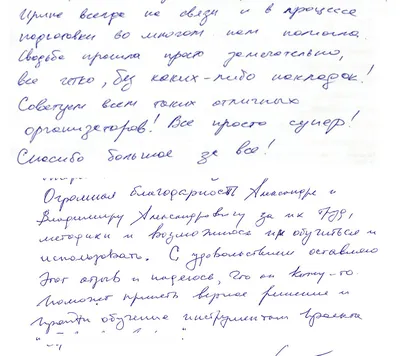 всегда на связи и в процессе
подготовки во многом нам помогла.
Свадьба прошла просто замечательно,
все четко, без каких-либо накладок!
Советуем всем таких отличных
организаторов! Все просто супер!
Спасибо большое за все!
Огромная благодарность Александре и
Владимиру Александровичу за их труд,
методики и возможность их обучиться и
использовать. С удовольствием оставляю
этот отзыв и надеюсь, что он кому-то
поможет принять верное решение и
пройти обучение инструментам